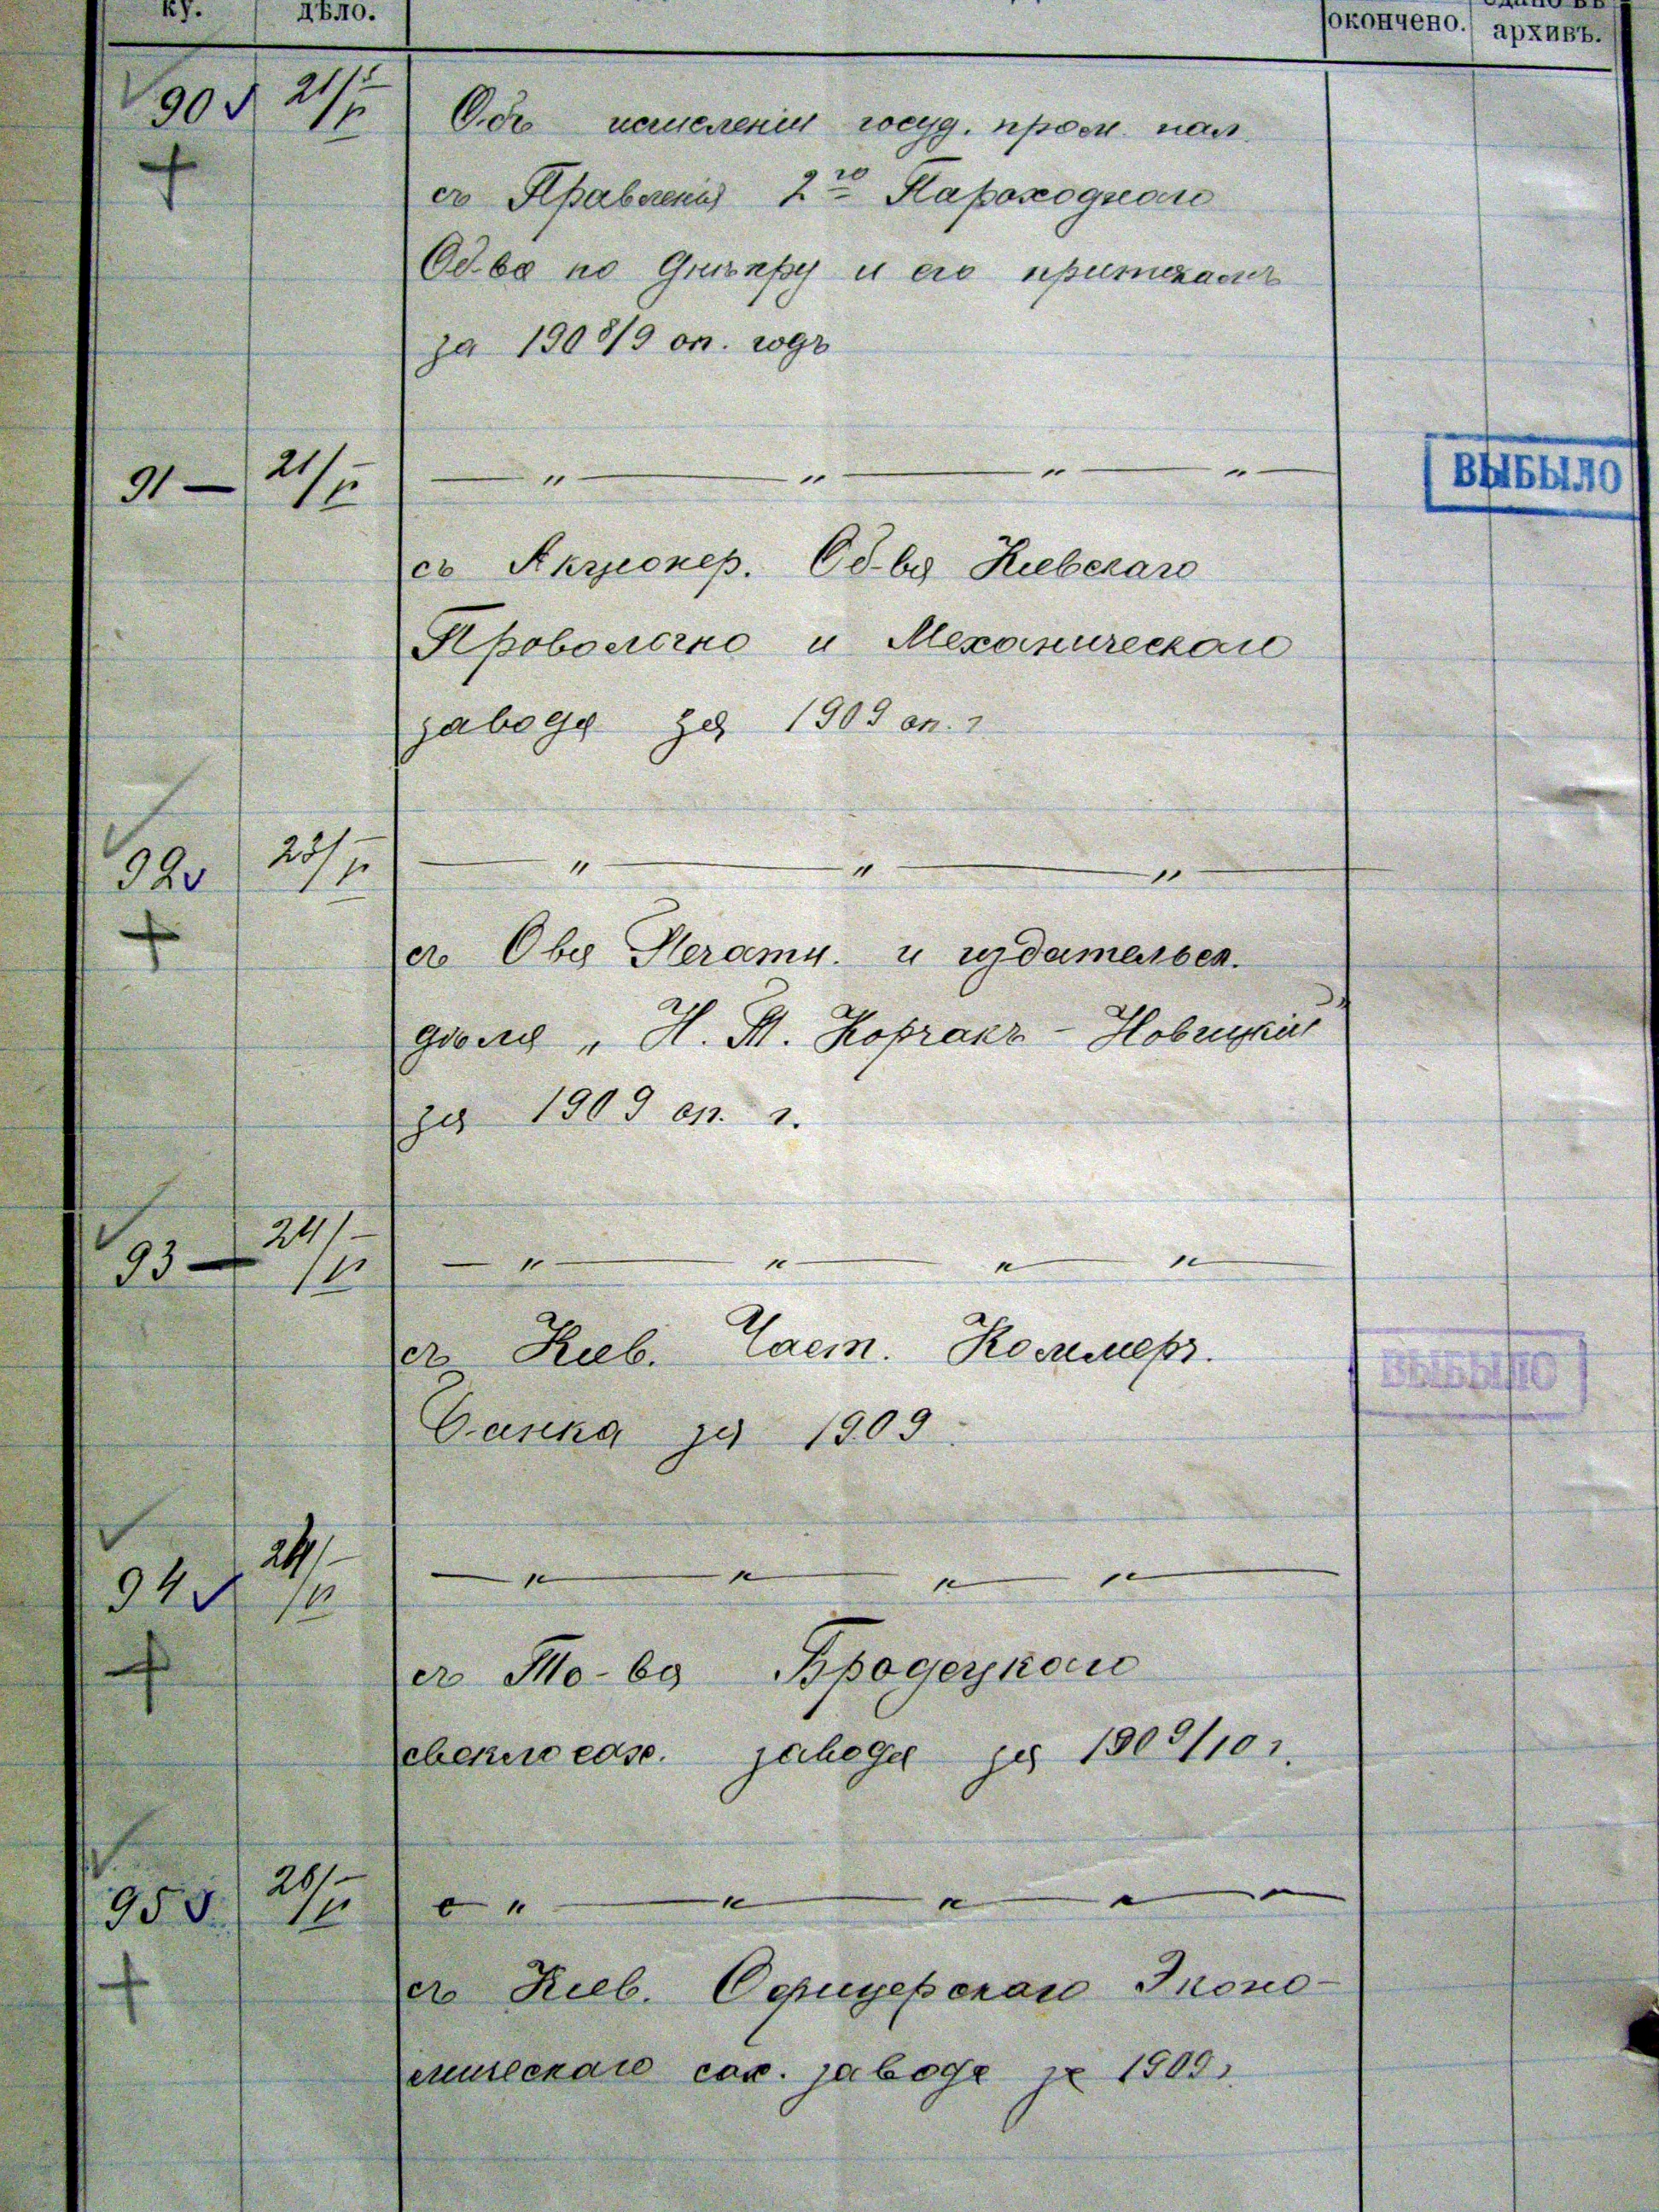 ку. дѣло. окончено. архивъ.
90 21/II Объ исчисленіи госуд. пром. нал.
съ Правленія 2го Пароходнаго
Об-ва по Днѣпру и его притокамъ
за 1908/9 оп. годъ
91 — 21/II — " — " — " — " —
ВЫБЫЛО
съ Акціонер. Об-ва Кіевскаго
Проволочно и Механическаго
завода за 1909 оп. г.
92 23/II — " — " — " —
съ Ова Печатн. и издательск.
дѣла „Н. Т. Корчакъ-Новицкій"
за 1909 оп. г.
93 — 24/II — " — " — " — " —
съ Кіев. Част. Коммерч.
ВЫБЫЛО
Банка за 1909
94 24/II — " — " — " — " —
съ То-ва Бродецкаго
свеклосах. завода за 1909/10 г.
95 26/II " — " — " — " — " —
съ Кіев. Офицерскаго Эконо-
мическаго сах. завода за 1909 г.